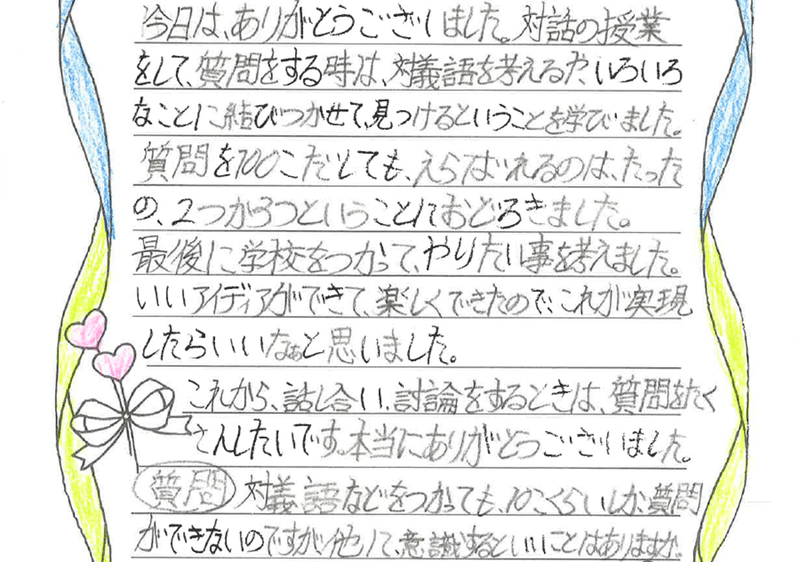 今日は、ありがとうございました。対話の授業
をして、質問をする時は、対義語を考えるた、いろいろ
なことに結びつかせて、見つけるということを学びました。
質問を100こだしても、えらばれるのは、たった
の、2つか3つということにおどろきました。
最後に学校をつかって、やりたい事を考えました。
いいアイディアができて、楽しくできたので、これが実現
したらいいなぁと思いました。
これから、話し合い、討論をするときは、質問をたく
さんしたいです。本当にありがとうございました。
質問 対義語などをつかっても、10こくらいしか、質問
ができないのですが、他にて、意識するといいことはありますか。